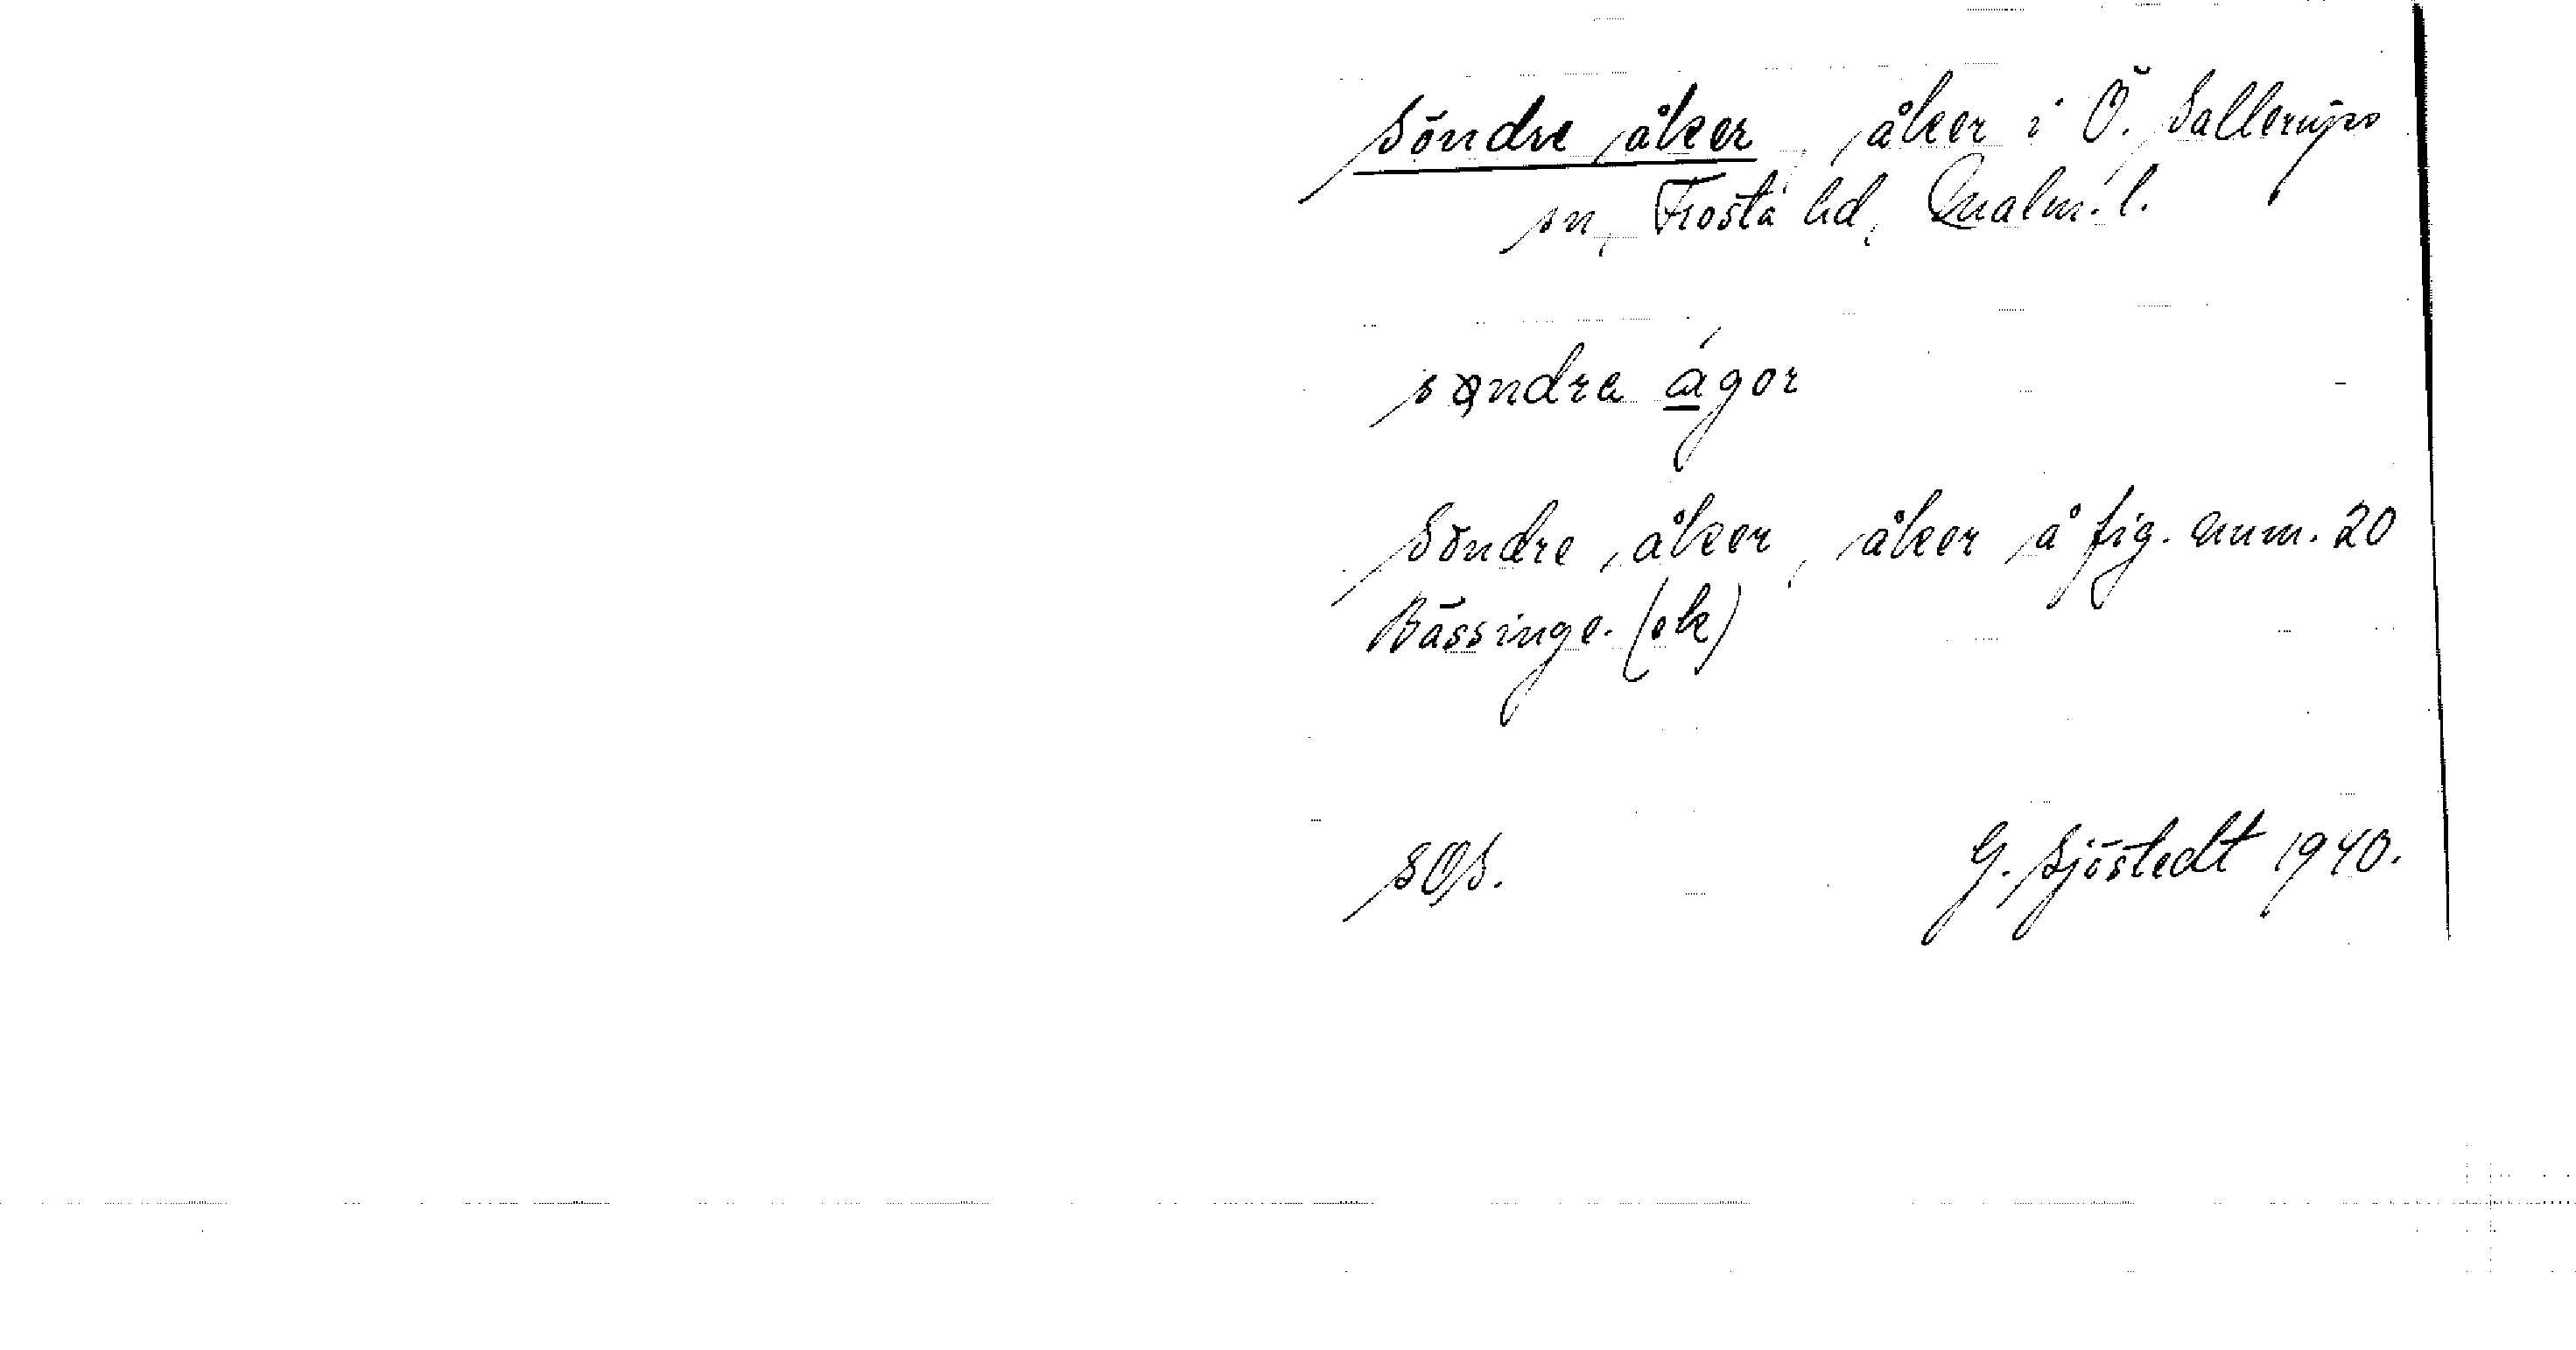 Söndre åker, åker i Ö. Sallerups
sn, Frosta hd, Malm. l.
sǫndra ágor
Söndre åker, åker å fig. num. 20
Bässinge. (ek)
SOS. G. Sjöstedt 1940.